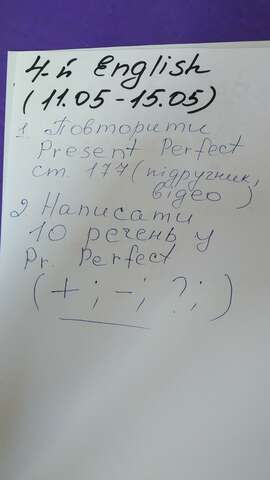 4-й English
(11.05-15.05)
1. Повторити
Present Perfect
ст. 177 (підручник,
відео)
2. Написати
10 речень у
Pr. Perfect
(+; -; ?;)